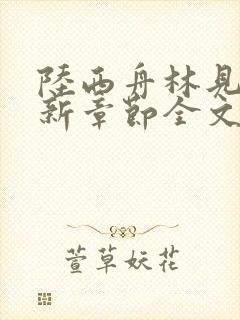 陸西舟林見
新章節全文
萱草妖花